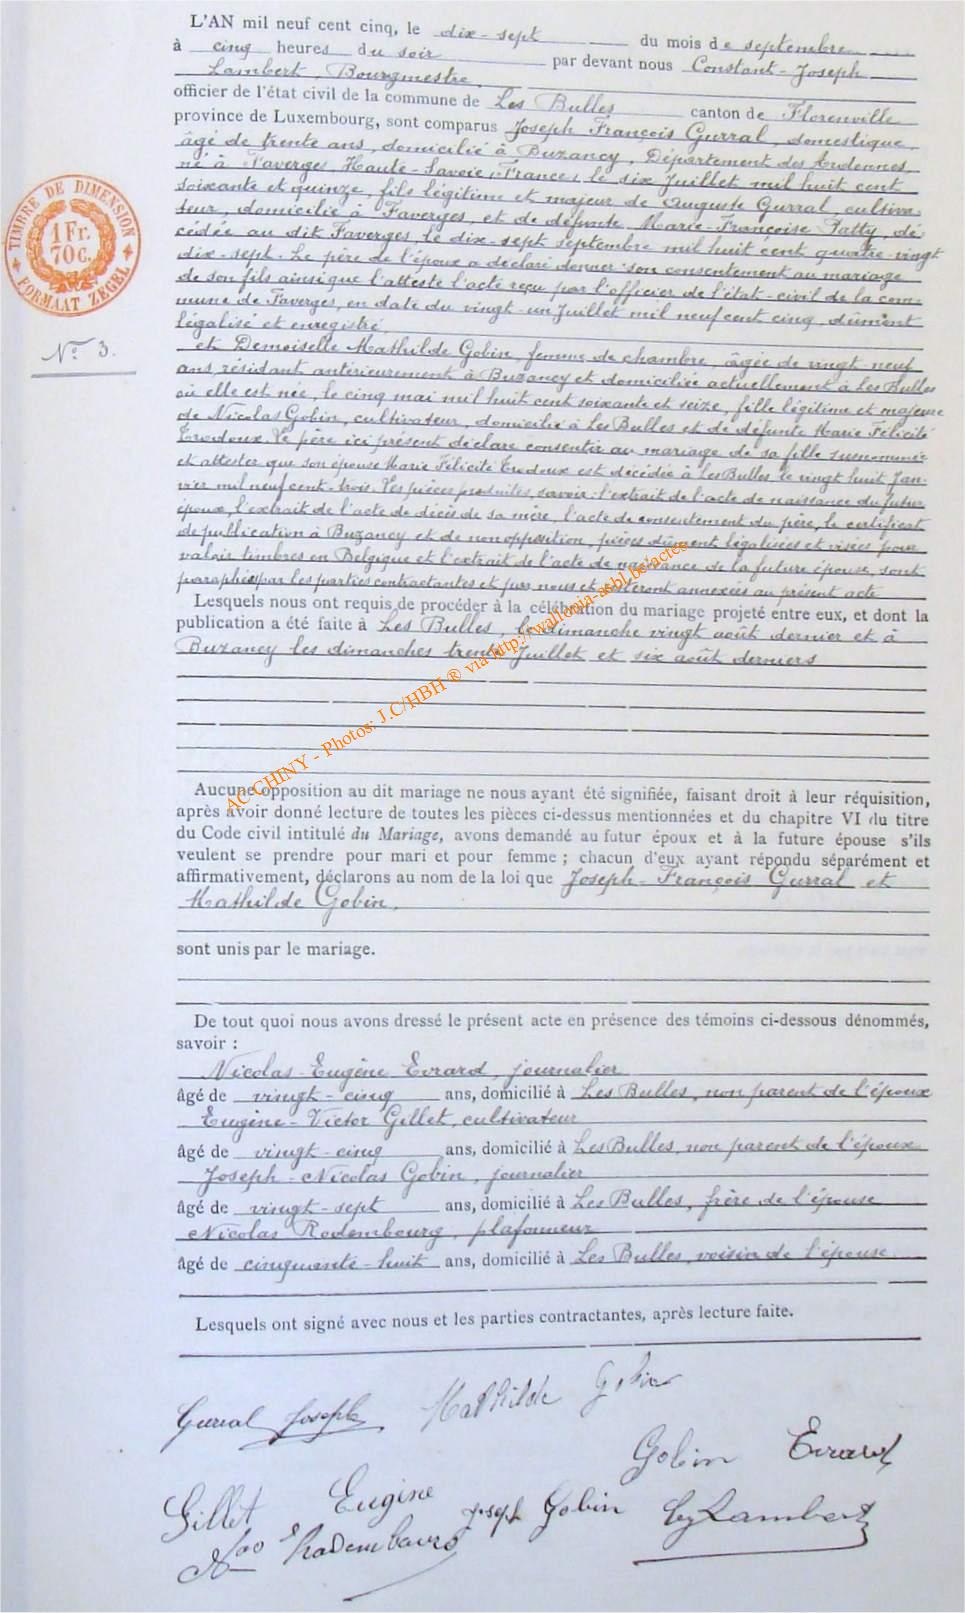 L'AN mil neuf cent cinq, le dix-sept du mois de septembre
à cinq heures du soir par devant nous Constant-Joseph
Lambert, Bourgmestre,
officier de l'état civil de la commune de Les Bulles canton de Florenville
province de Luxembourg, sont comparus Joseph François Gurral, domestique,
âgé de trente ans, domicilié à Buzancy, Département des Ardennes,
né à Faverges, Haute-Savoie (France), le six Juillet mil huit cent
soixante et quinze, fils légitime et majeur de Auguste Gurral, cultiva-
teur, domicilié à Faverges, et de défunte Marie-Françoise Fatty, dé-
cédée au dit Faverges le dix-sept septembre mil huit cent quatre-vingt
dix-sept. Le père de l'époux a déclaré donner son consentement au mariage
de son fils ainsi que l'atteste l'acte reçu par l'officier de l'état-civil de la com-
mune de Faverges, en date du vingt-un Juillet mil neuf cent cinq, dûment
légalisé et enregistré
et Demoiselle Mathilde Gobin, femme de chambre, âgée de vingt-neuf
ans, résidant antérieurement à Buzancy et domiciliée actuellement à Les Bulles
où elle est née, le cinq mai mil huit cent soixante et seize, fille légitime et majeure
de Nicolas Gobin, cultivateur, domicilié à Les Bulles et de défunte Marie Félicité
Erodoux. Le père ici présent déclare consentir au mariage de sa fille susnommée
et attester que son épouse Marie Félicité Erodoux est décédée à Les Bulles, le vingt huit Jan-
vier mil neuf cent-trois. Les pièces produites, savoir: l'extrait de l'acte de naissance du futur
époux, l'extrait de l'acte de décès de sa mère, l'acte de consentement du père, le certificat
de publication à Buzancy et de non opposition, pièces dûment légalisées et visées pour
valoir timbres en Belgique et l'extrait de l'acte de naissance de la future épouse, sont
paraphées par les parties contractantes et par nous et resteront annexées au présent acte
Lesquels nous ont requis de procéder à la célébration du mariage projeté entre eux, et dont la
publication a été faite à Les Bulles, le dimanche vingt août dernier et à
Buzancy les dimanches trente Juillet et six août derniers
TIMBRE DE DIMENSION
1 Fr.
70 c.
FORMAAT ZEGEL
No 3.
AC CHINY - Photos: J.C/HBH ® via http://wallonia-asbl.be/actes
Aucune opposition au dit mariage ne nous ayant été signifiée, faisant droit à leur réquisition,
après avoir donné lecture de toutes les pièces ci-dessus mentionnées et du chapitre VI du titre
du Code civil intitulé du Mariage, avons demandé au futur époux et à la future épouse s'ils
veulent se prendre pour mari et pour femme ; chacun d'eux ayant répondu séparément et
affirmativement, déclarons au nom de la loi que Joseph-François Gurral et
Mathilde Gobin,
sont unis par le mariage.
De tout quoi nous avons dressé le présent acte en présence des témoins ci-dessous dénommés,
savoir :
Nicolas Eugène Evrard, journalier
âgé de vingt-cinq ans, domicilié à Les Bulles, non parent de l'époux
Eugène-Victor Gillet, cultivateur
âgé de vingt-cinq ans, domicilié à Les Bulles, non parent de l'époux
Joseph-Nicolas Gobin, journalier
âgé de vingt-sept ans, domicilié à Les Bulles, frère de l'épouse
Nicolas Rodembourg, plafonneur
âgé de cinquante-huit ans, domicilié à Les Bulles, voisin de l'épouse
Lesquels ont signé avec nous et les parties contractantes, après lecture faite.
Gurral Joseph Mathilde Gobin
Gobin Evrard
Gillet Eugène Joseph Gobin CJ Lambert
Nas Rodembourg